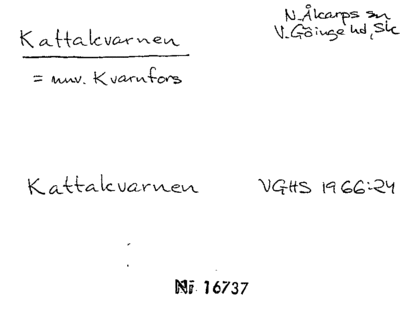 Kattakvarnen
N. Åkarps sn
V. Göinge hd, Sk
= nuv. Kvarnfors
Kattakvarnen VGHS 1966:24
Nr 16737